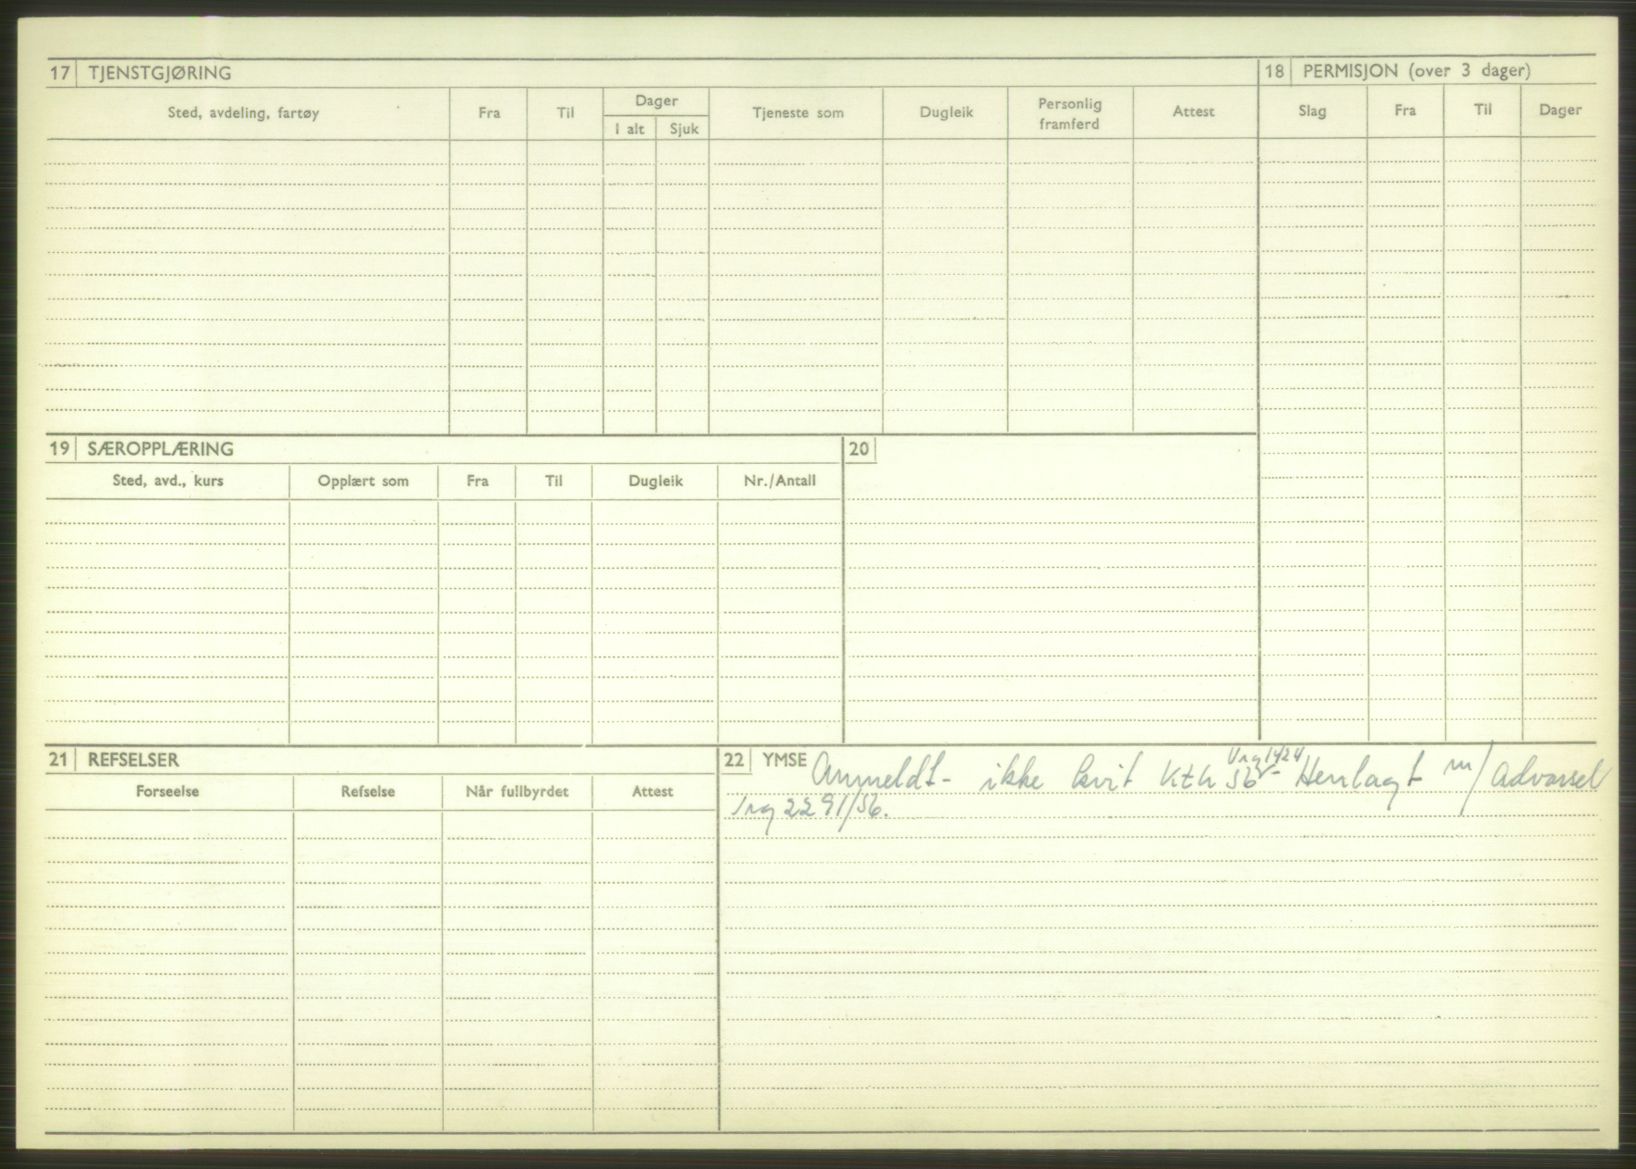 17 TJENSTGJØRING
18 PERMISJON (over 3 dager)
Sted, avdeling, fartøy Fra Til Dager I alt Sjuk Tjeneste som Dugleik Personlig framferd Attest
Slag Fra Til Dager
19 SÆROPPLÆRING
20
Sted, avd., kurs Opplært som Fra Til Dugleik Nr./Antall
21 REFSELSER
22 YMSE Anmeldt - ikke kvit 56 - Henlagt m/ advarsel
Forseelse Refselse Når fullbyrdet Attest
2291/56.